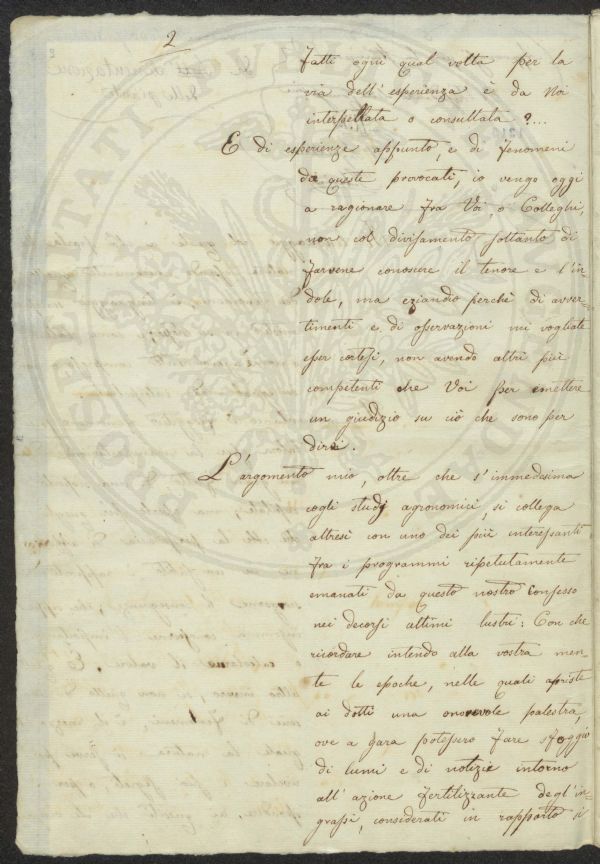 2
fatti ogni qual volta per la
via dell'esperienza è da Noi
interpellata o consultata?...
E di esperienze appunto, e di fenomeni
da queste provocati, io vengo oggi
a ragionare fra Voi, o Colleghi,
non col divisamento soltanto di
farvene conoscere il tenore e l'in-
dole, ma eziandio perchè di avver-
timenti e di osservazioni mi vogliate
esser cortesi, non avendo altri più
competenti che Voi per emettere
un giudizio su ciò che sono per
dirvi.
L'argomento mio, oltre che s'immedesima
cogli studj agronomici, si collega
altresì con uno dei più interessanti
fra i programmi ripetutamente
emanati da questo nostro Consesso
nei decorsi ultimi lustri: Con che
ricordare intendo alla vostra men-
te le epoche, nelle quali apriste
ai dotti una onorevole palestra,
ove a gara potessero fare sfoggio
di lumi e di notizie intorno
all'azione fertilizzante degl'in-
grassi, considerati in rapporto i